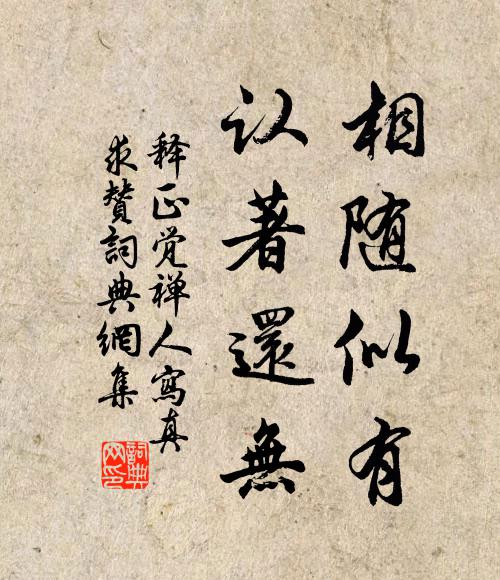 相随似有
认著還無
释正觉禅人寫真
求贊詞典網集
詞典
网印